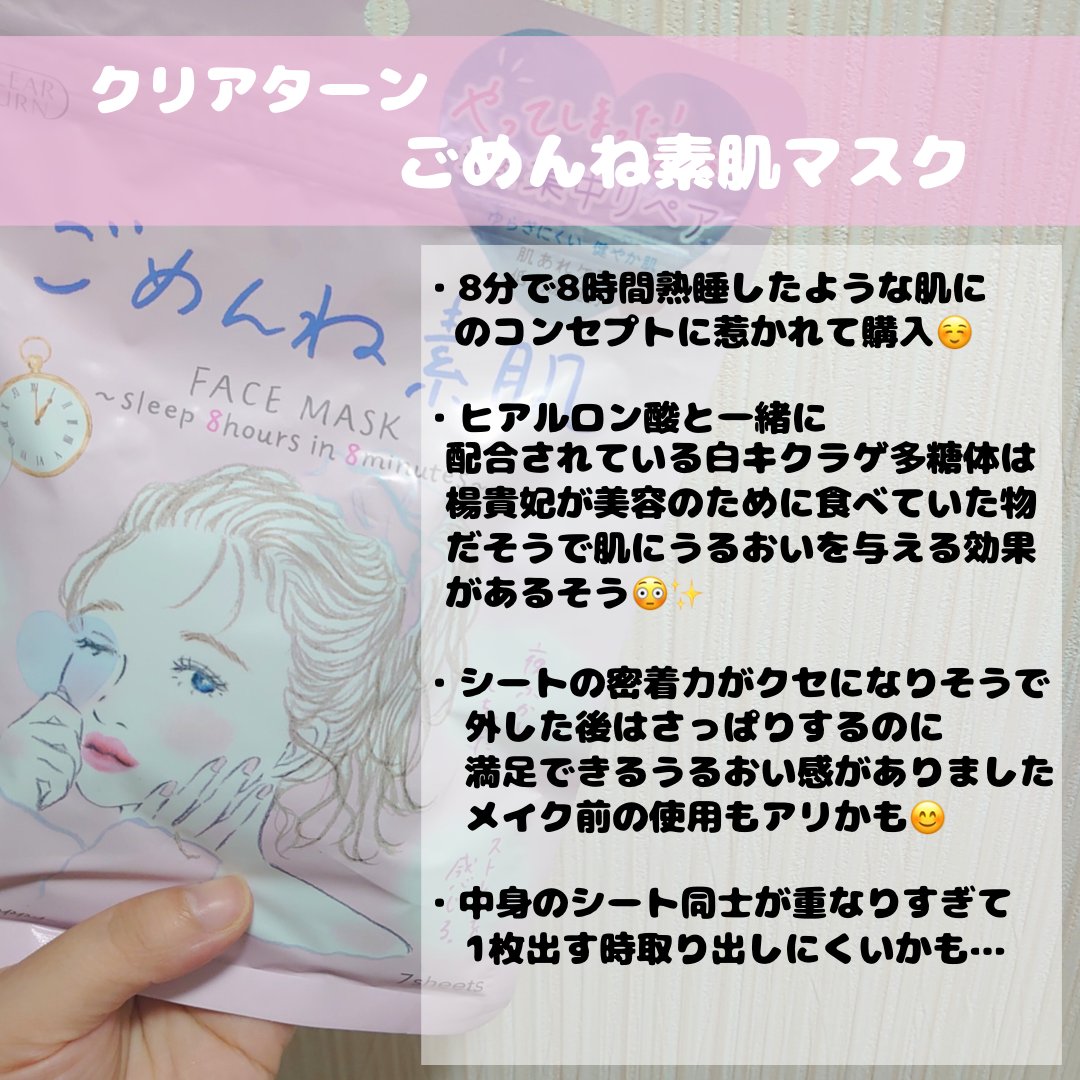 クリアターン
ごめんね素肌マスク
・8分で8時間熟睡したような肌に
のコンセプトに惹かれて購入☺️
・ヒアルロン酸と一緒に
配合されている白キクラゲ多糖体は
楊貴妃が美容のために食べていた物
だそうで肌にうるおいを与える効果
があるそう😳✨
・シートの密着力がクセになりそうで
外した後はさっぱりするのに
満足できるうるおい感がありました
メイク前の使用もアリかも😊
・中身のシート同士が重なりすぎて
1枚出す時取り出しにくいかも…
やってしまった!
集中リペア
ゆらぎにくい健やか肌
肌あれ
ごめんね素肌
FACE MASK
~sleep 8hours in 8minutes~
7sheets